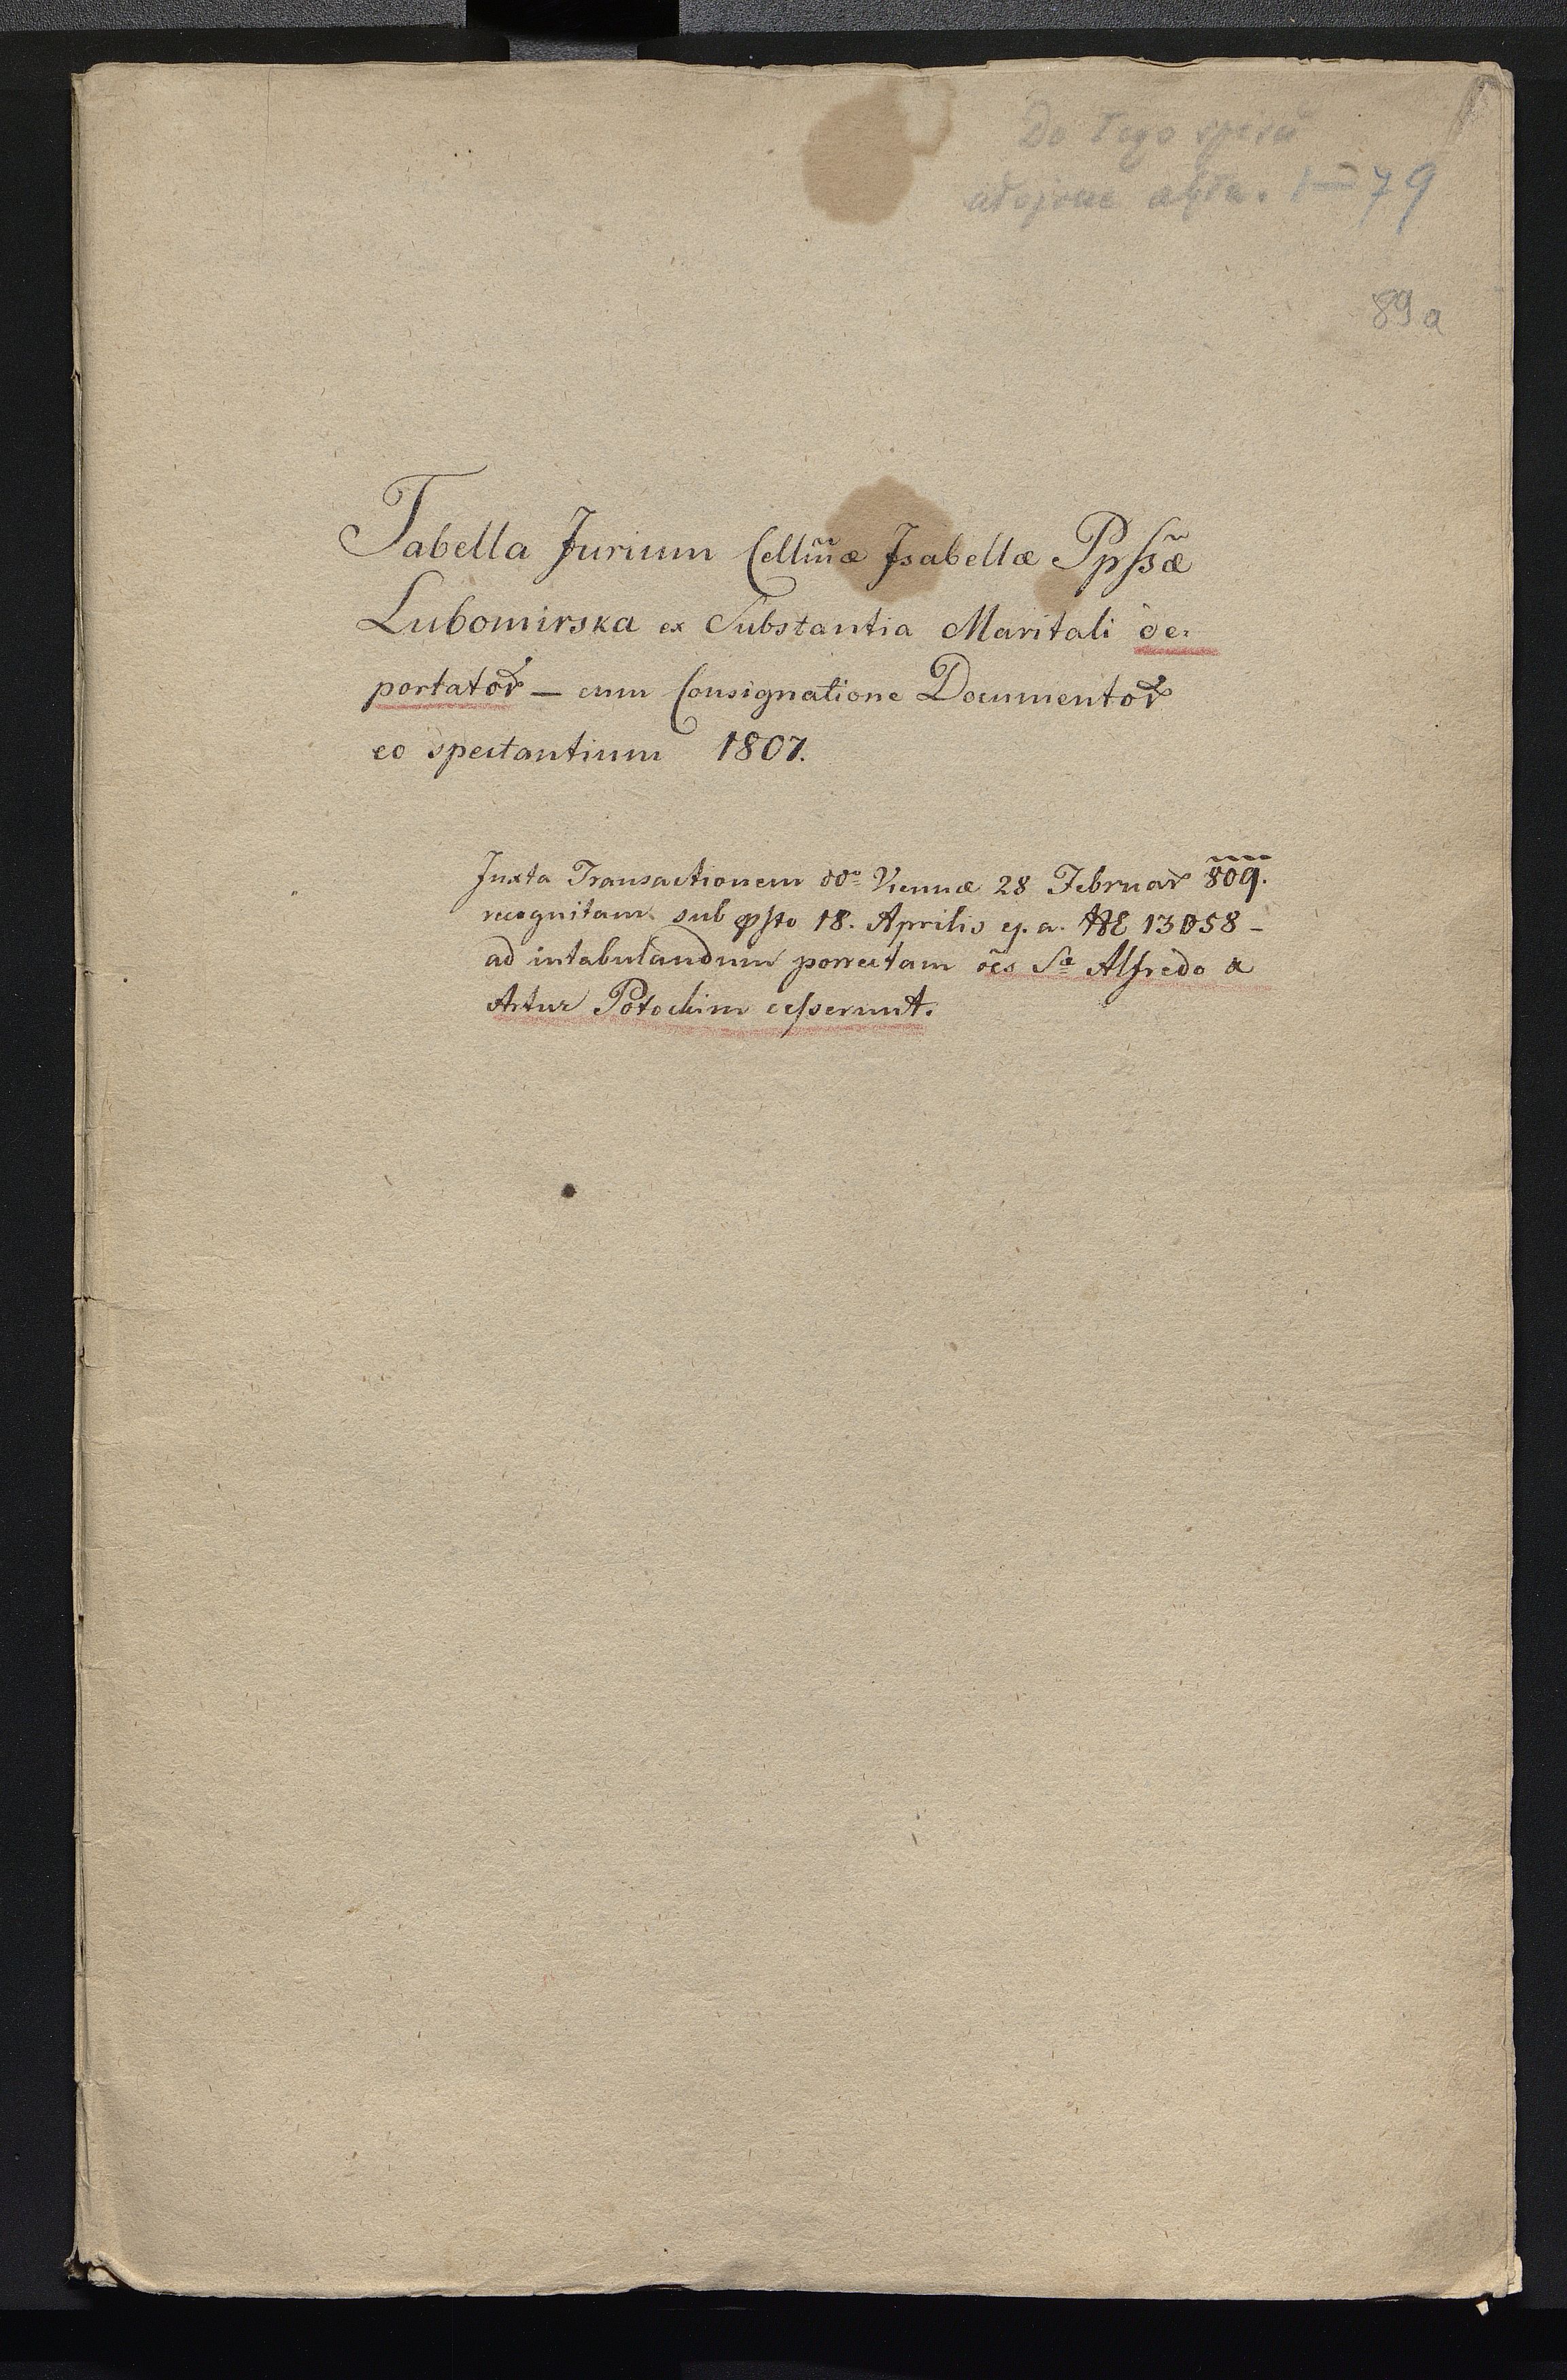 Do tego spisu
akta. 1–79
89 a
Tabella Jurium Cellm̃æ Isabellæ Ppſsæ̃
Lubomirska ex Substantia Maritali de-
portatoꝝ — cum Consignatione Documentoꝝ
eo spectantium 1807.
Juxta Transactionem dd<sup>o</sup> Viennæ 28 Februar 809.
recognitam sub 18. Aprilis ej. a. 13058 –
ad intabulandum porrectam oẽs Alfredo &
Artur Potockim ceſserunt.